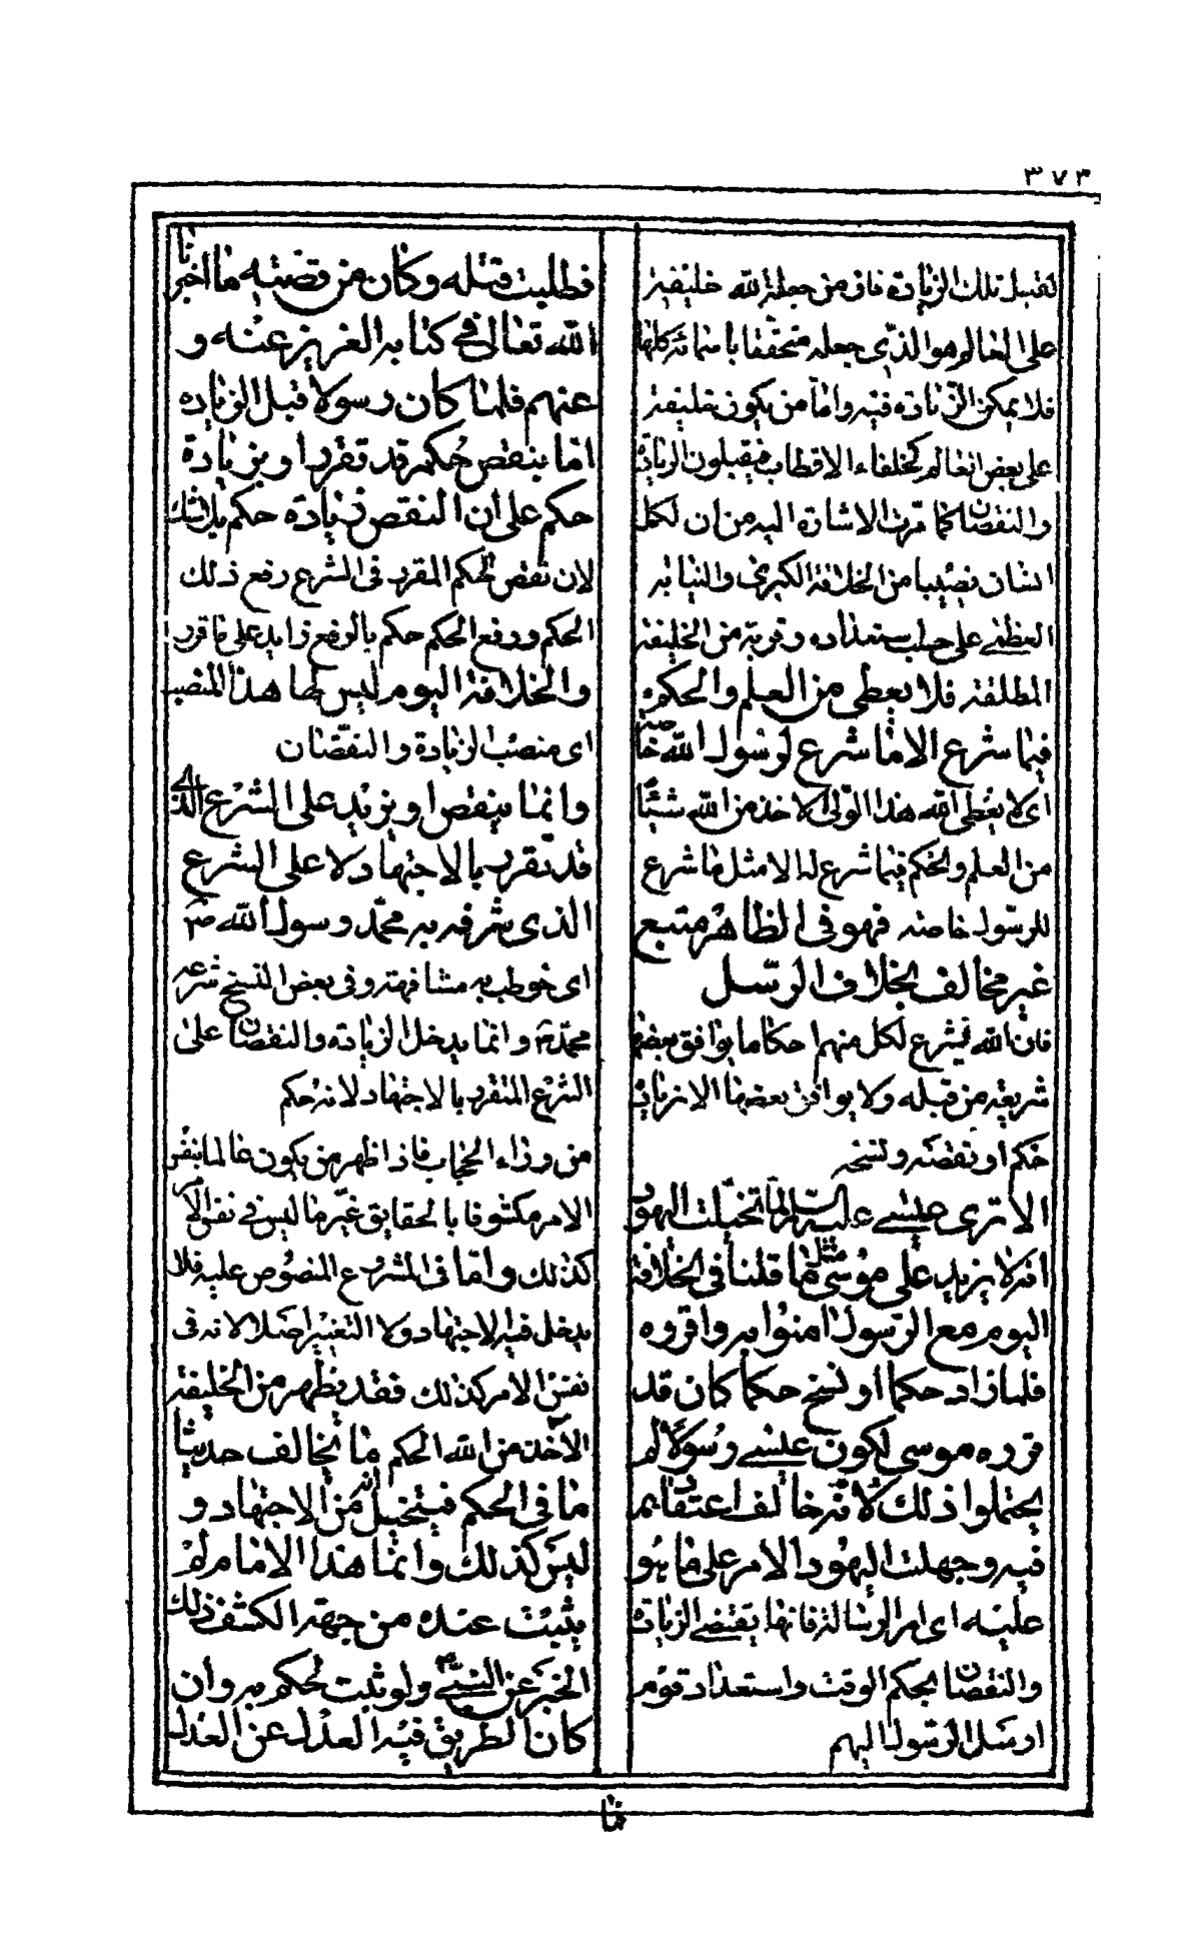 ٣٧٣
لقبل تلك الزيادة فان من جعله الله خليفة
على العالم هو الذى جعله متحققا باسمائه كلها
فلا يمكن الزيادة فيه واما من يكون خليفة
على بعض العالم كخلفاء الاقطاب فيقبلون الزيادة
والنقصان كما مرت الاشارة اليه من ان لكل
انسان نصيبا من الخلافة الكبرى والنيابة
العظمى على حسب استعداده وقربه من الخليفة
المطلقة فلا يعطى من العلم والحكم
فيما شرع الا ما شرع لرسول الله خاصة
اى لا يعطى الله هذا الولى الاخذ من الله شيئا
من العلم والحكم فيما شرع له الا مثل ما شرع
للرسول خاصة فهو فى الظاهر متبع
غير مخالف بخلاف الرسل
فان الله يشرع لكل منهم احكاما يوافق بعضها
شريعة من قبله ولا يوافق بعضها الا بزيادة
حكم او نقصه ونسخه
الا ترى عيسى عليه السلام لما تخيلت اليهود
انه لا يزيد على موسى مثل ما قلنا فى الخلافة
اليوم مع الرسول امنوا به واقروه
فلما زاد حكما او نسخ حكما كان قد
قرره موسى لكون عيسى رسولا لم
يحتملوا ذلك لانه خالف اعتقادهم
فيه وجهلت اليهود الامر على ما هو
عليه اى امر الرسالة فانها يقتضى الزيادة
والنقصان بحكم الوقت واستعداد قوم
ارسل الرسول اليهم
فطلبت قتله وكان من قصته ما اخبرنا
الله تعالى فى كتابه العزيز عنه و
عنهم فلما كان رسولا قبل الزيادة
اما بنقص حكم قد تقرر او بزيادة
حكم على ان النقص زيادة حكم بلا شك
لان نقص الحكم المقرر فى الشرع رفع ذلك
الحكم ورفع الحكم حكم بالرفع زايد على ما قرر
والخلافة اليوم ليس لها هذا المنصب
اى منصب الزيادة والنقصان
وانما ينقص او يزيد على الشرع الذى
قد تقرر بالاجتهاد لا على الشرع
الذى شرفه به محمد رسول الله ص
اى خوطب به مشافهة وفى بعض النسخ شرعه
محمد وانما يدخل الزيادة والنقصان على
الشرع المتقرر بالاجتهاد لانه حكم
من وراء الحجاب فاذا ظهر من يكون عالما بنفس
الامر مكشوفا بالحقايق غير ما ليس فى نفس الامر
كذلك واما فى المشروع المنصوص عليه فلا
يدخل فيه الاجتهاد ولا التغيير اصلا لانه فى
نفس الامر كذلك فقد يظهر من الخليفة
الآخذ من الله الحكم ما يخالف حديثا
ما فى الحكم فيتخيل انه من الاجتهاد و
ليس كذلك وانما هذا الامام لم
يثبت عنده من جهة الكشف ذلك
الخبر عن النبى ولو ثبت لحكم به وان
كان الطريق فيه العدل عن العدل
فما